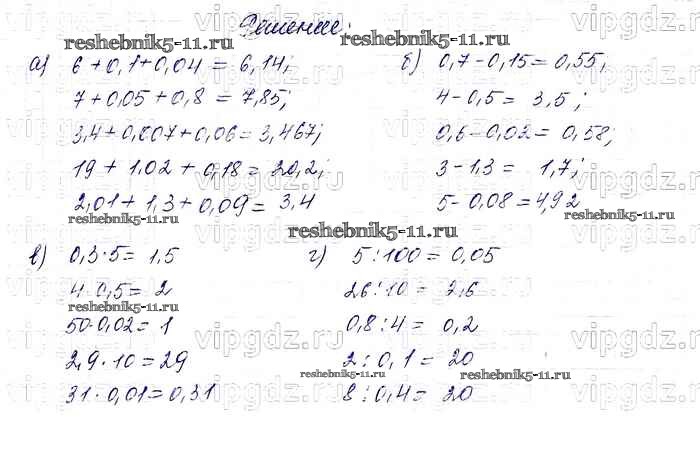 Решение:
а) 6 + 0,1 + 0,04 = 6,14;
7 + 0,05 + 0,8 = 7,85;
3,4 + 0,007 + 0,06 = 3,467;
19 + 1,02 + 0,18 = 20,2;
2,01 + 1,3 + 0,09 = 3,4
б) 0,7 - 0,15 = 0,55;
4 - 0,5 = 3,5;
0,6 - 0,02 = 0,58;
3 - 1,3 = 1,7;
5 - 0,08 = 4,92
в) 0,3 · 5 = 1,5
4 · 0,5 = 2
50 · 0,02 = 1
2,9 · 10 = 29
31 · 0,01 = 0,31
г) 5 : 100 = 0,05
26 : 10 = 2,6
0,8 : 4 = 0,2
2 : 0,1 = 20
8 : 0,4 = 20
reshebnik5-11.ru
reshebnik5-11.ru
reshebnik5-11.ru
reshebnik5-11.ru
reshebnik5-11.ru
reshebnik5-11.ru
reshebnik5-11.ru
reshebnik5-11.ru
vipgdz.ru